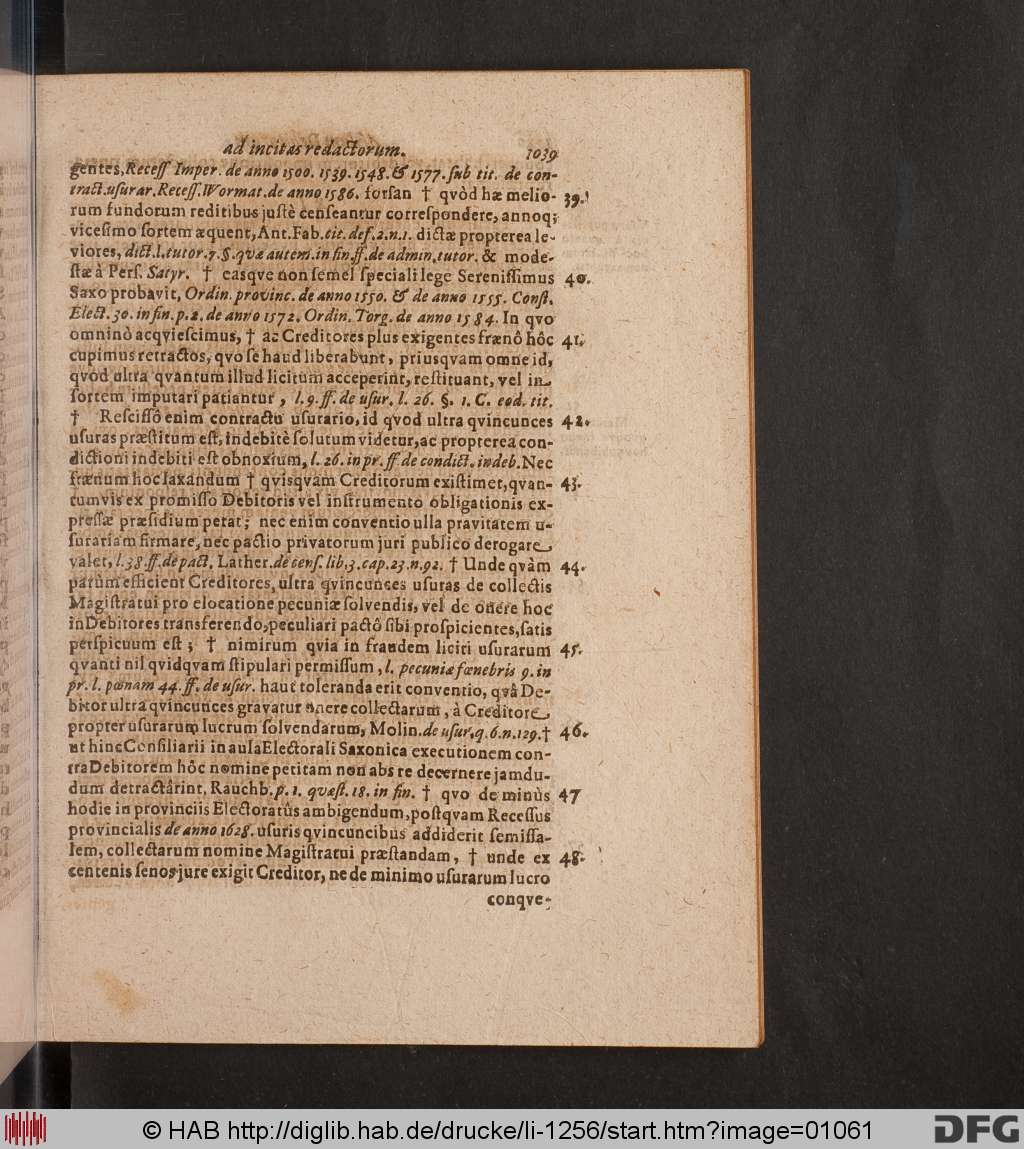 ad incitas redactorum. 1039
gentes, Receſſ Imper. de anno 1500. 1539. 1548. & 1577. ſub tit. de con-
tract. uſurar. Receſſ. Wormat. de anno 1586. forſan † quòd hæ melio- 39.
rum fundorum reditibus juſtè cenſeantur correſpondere, annoq;
viceſimo ſortem æquent, Ant. Fab. cit. def. 2. n. 1. dictæ propterea le-
viores, dict. l. tutor. 7. §. qvæ autem. in fin. ff. de admin. tutor. & mode-
ſtæ à Perſ. Satyr. † easqve non ſemel ſpeciali lege Sereniſſimus 40.
Saxo probavit, Ordin. provinc. de anno 1550. & de anno 1555. Conſt.
Elect. 30. in fin. p. 2. de anno 1572. Ordin. Torg. de anno 1584. In qvo
omninò acqvieſcimus, † ac Creditores plus exigentes frænô hôc 41.
cupimus retractos, qvo ſe haud liberabunt, priusqvam omne id,
qvod ultra qvantum illud licitum acceperint, reſtituant, vel in
ſortem imputari patiantur, l. 9. ff. de uſur. l. 26. §. 1. C. eod. tit.
† Reſciſſô enim contractu uſurario, id qvod ultra qvincunces 42.
uſuras præſtitum eſt, indebitè ſolutum videtur, ac propterea con-
dictioni indebiti eſt obnoxium, l. 26. in pr. ff. de condict. indeb. Nec
frænum hoc laxandum † qvisqvam Creditorum exiſtimet, qvan- 43.
tumvis ex promiſſo Debitoris vel inſtrumento obligationis ex-
preſſæ præſidium petat; nec enim conventio ulla pravitatem u-
ſurariam firmare, nec pactio privatorum juri publico derogare
valet, l. 38. ff. de pact. Lather. de cenſ. lib. 3. cap. 23. n. 92. † Unde qvàm 44.
parùm efficient Creditores, ultra qvincunces uſuras de collectis
Magiſtratui pro elocatione pecuniæ ſolvendis, vel de onere hoc
in Debitores transferendo, peculiari pactô ſibi proſpicientes, ſatis
perſpicuum eſt; † nimirum qvia in fraudem liciti uſurarum 45.
qvanti nil qvidqvam ſtipulari permiſſum, l. pecuniæ fœnebris 9. in
pr. l. pœnam 44. ff. de uſur. haut toleranda erit conventio, qvâ De-
bitor ultra qvincunces gravatur onere collectarum, à Creditore
propter uſurarum lucrum ſolvendarum, Molin. de uſur. q. 6. n. 129. † 46.
ut hinc Conſiliarii in aula Electorali Saxonica executionem con-
tra Debitorem hôc nomine petitam non abs re decernere jamdu-
dum detractârint, Rauchb. p. 1. quæſt. 18. in fin. † qvo de minùs 47
hodie in provinciis Electoratûs ambigendum, poſtqvam Receſſus
provincialis de anno 1628. uſuris qvincuncibus addiderit ſemiſſa-
lem, collectarum nomine Magiſtratui præſtandam, † unde ex 48.
centenis ſenos jure exigit Creditor, ne de minimo uſurarum lucro
conqve-
© HAB http://diglib.hab.de/drucke/li-1256/start.htm?image=01061
DFG